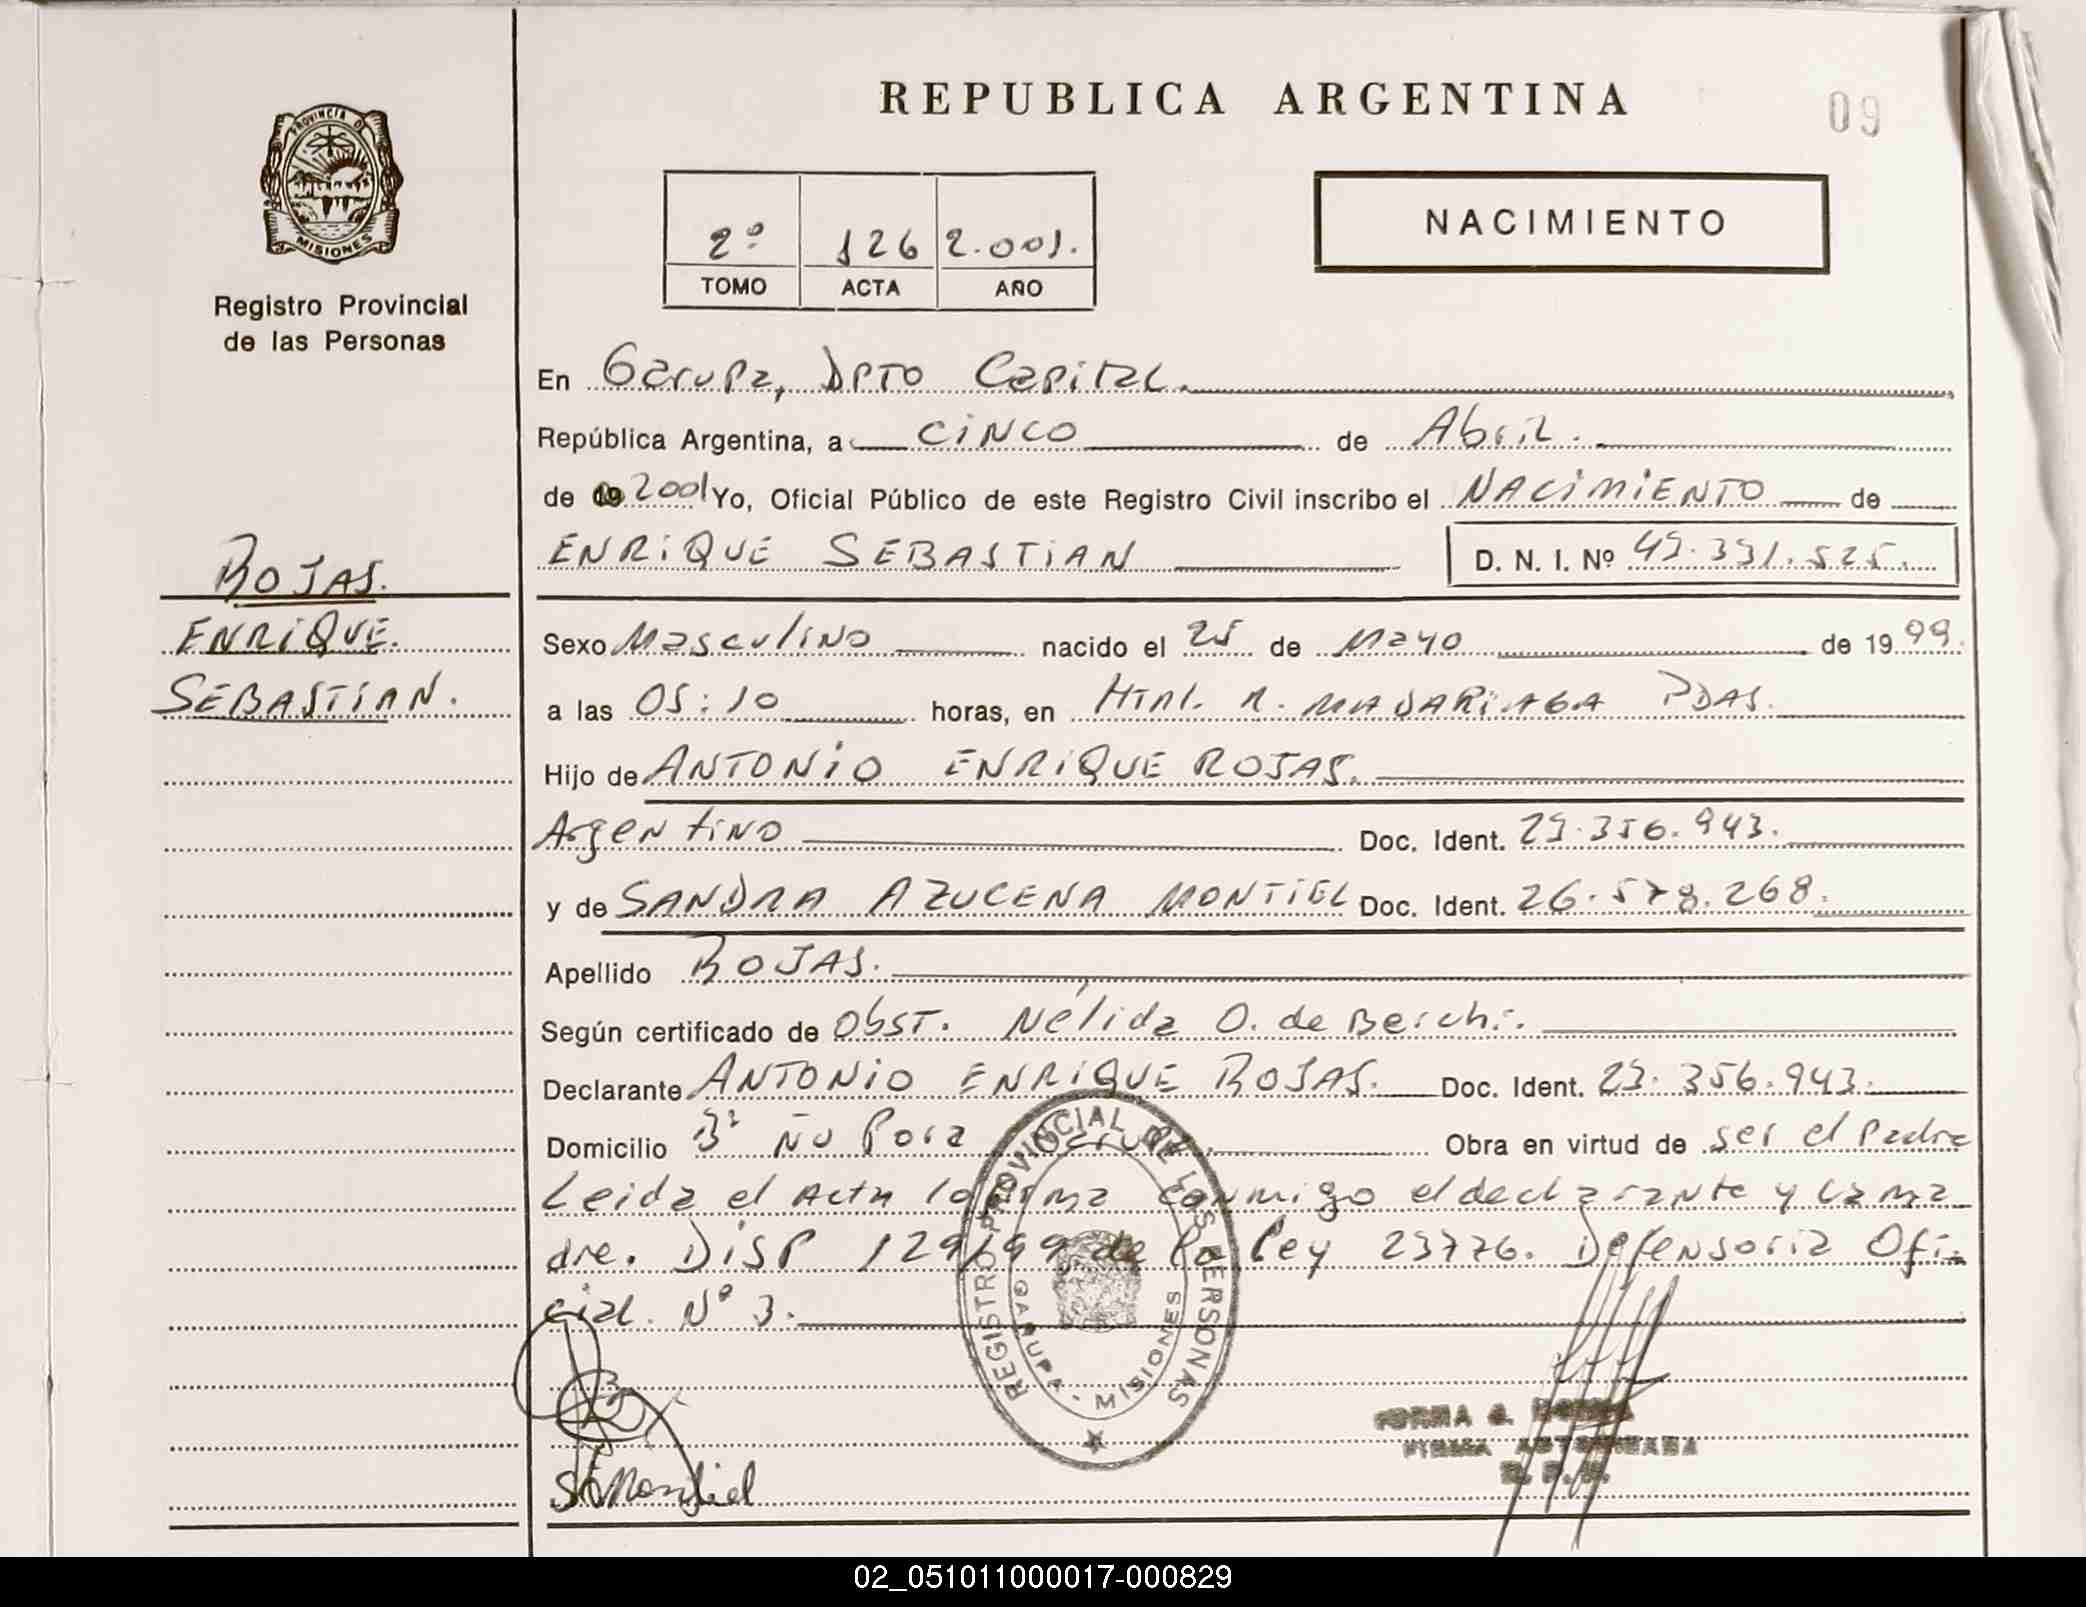 REPUBLICA ARGENTINA
09
PROVINCIA DE MISIONES
Registro Provincial
de las Personas
2º 126 2.001.
TOMO ACTA AÑO
NACIMIENTO
En Garupa, Dpto Capital.
República Argentina, a CINCO de Abril.
de 19 2001 Yo, Oficial Público de este Registro Civil inscribo el NACIMIENTO de
ENRIQUE SEBASTIAN D. N. I. Nº 49.331.525.
ROJAS.
ENRIQUE.
SEBASTIAN.
Sexo Masculino nacido el 25 de Mayo de 1999.
a las 05:10 horas, en Htal. R. MADARIAGA PDAS.
Hijo de ANTONIO ENRIQUE ROJAS.
Argentino Doc. Ident. 23.356.943.
y de SANDRA AZUCENA MONTIEL Doc. Ident. 26.578.268.
Apellido ROJAS.
Según certificado de Obst. Nélida O. de
Declarante ANTONIO ENRIQUE ROJAS. Doc. Ident. 23.356.943.
Domicilio Bº Ñu Pora Garupa. Obra en virtud de ser el Padre
Leida el Acta la firma conmigo el declarante y la ma
dre. DISP 129/99 de la Ley 23776. Defensoria Ofi-
cial Nº 3.
REGISTRO PROVINCIAL DE LAS PERSONAS
GARUPA - MISIONES
S. Montiel
FIRMA AUTORIZADA
R. P. P.
02_051011000017-000829